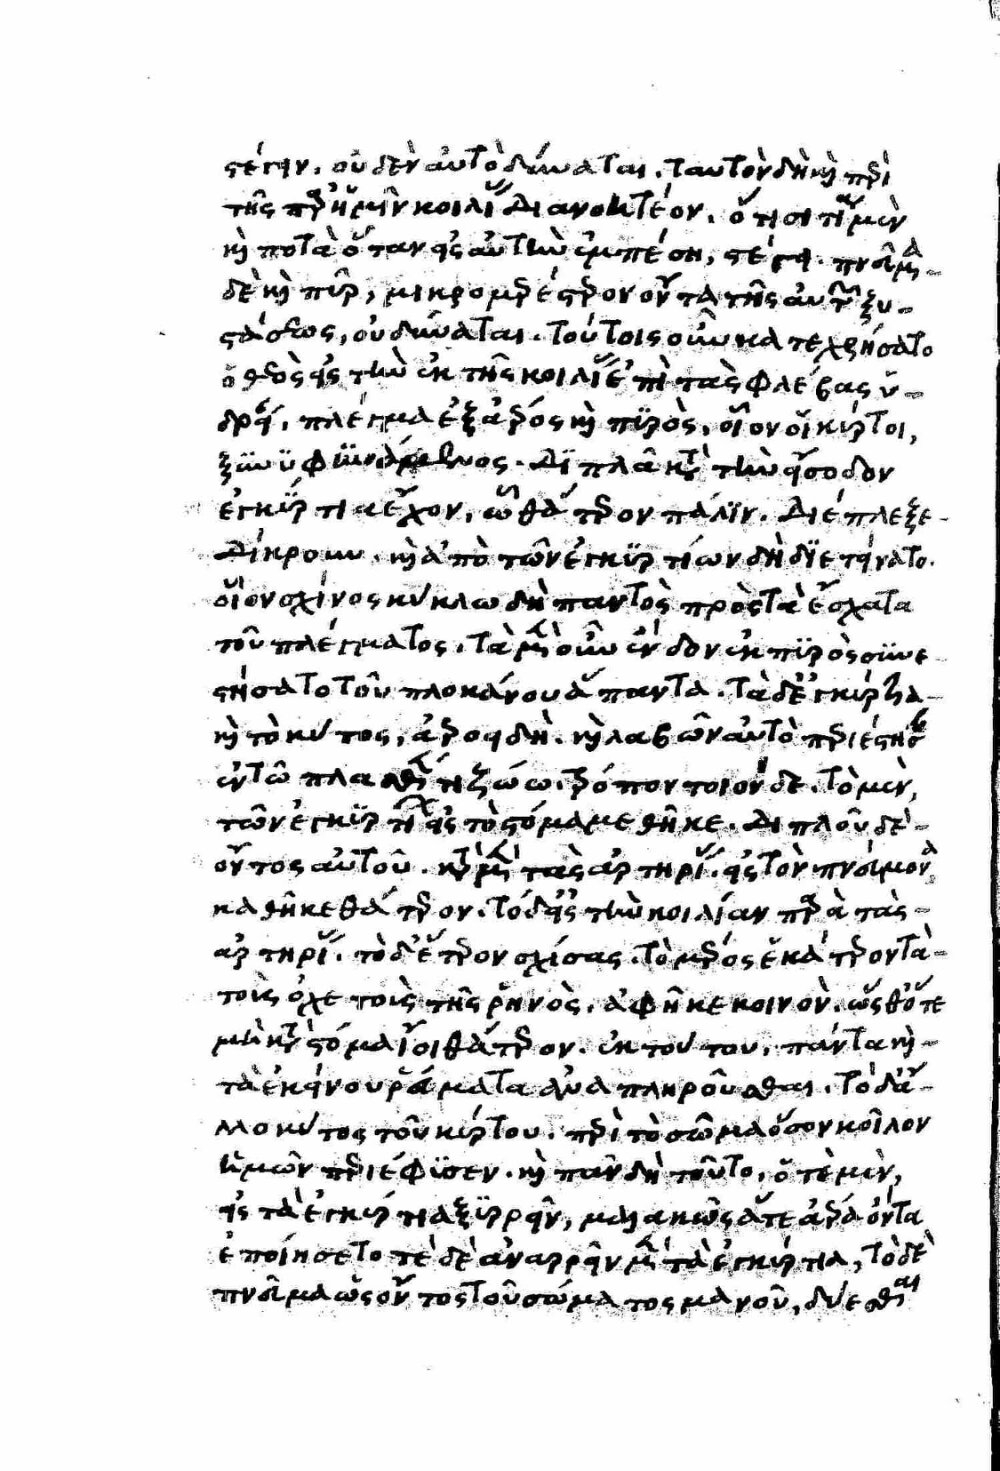 στέγειν. οὐδὲν αὐτὸ δύναται. ταυτὸν δὴ κὶ περὶ
τῆς παρ' ἡμῖν κοιλίας διανοητέον. ὅτι σιτία μὲν
κὶ ποτὰ ὅταν εἰς αὐτὴν ἐμπέση, στέγει. πνεῦμα
δὲ κὶ πῦρ, μικρομερέστερον ὄντα τῆς αὐτῆς ξυ-
στάσεως, οὐ δύναται. τούτοις οὖν κατεχρήσατο
ὁ θεὸς εἰς τὴν ἐκ τῆς κοιλίας ἐπὶ τὰς φλέβας ὑ-
δρείαν, πλέγμα ἐξ ἀέρος κὶ πυρὸς, οἷον οἱ κύρτοι,
ξυνυφηνάμενος. διπλᾶ κατὰ τὴν εἴσοδον
ἐγκύρτια ἔχον, ὧν θάτερον πάλιν. διέπλεξε
δίκρουν. κὶ ἀπὸ τῶν ἐγκυρτίων δὴ διετείνατο
οἷον σχίνος κύκλω διὰ παντὸς πρὸς τὰ ἔσχατα
τοῦ πλέγματος. τὰ μὲν οὖν ἔνδον ἐκ πυρὸς συνε
στήσατο τοῦ πλοκάνου ἅπαντα. τὰ δ' ἐγκύρτια
κὶ τὸ κύτος, ἀεροειδῆ. κὶ λαβὼν αὐτὸ περιέστησε
ἐν τῶ πλασθέντι ζώω. τρόπον τοιόνδε. τὸ μὲν,
τῶν ἐγκυρτίων εἰς τὸ στόμα μεθῆκε. διπλοῦ δὲ
ὄντος αὐτοῦ. κατὰ μὲν τὰς ἀρτηρίας εἰς τὸν πνεύμονα
καθῆκε θάτερον. τὸ δ' εἰς τὴν κοιλίαν παρὰ τὰς
ἀρτηρίας. τὸ δ' ἕτερον σχίσας. τὸ μέρος ἑκάτερον τὰ
τοὺς ὀχετοὺς τῆς ῥηνὸς. ἀφῆκε κοινὸν. ὥσθ' ὅτε
μὴ κατὰ στόμα ἴοι θάτερον. ἐκ τούτου. πάντα κὶ
τὰ ἐκείνου ῥεύματα ἀναπληροῦσθαι. τὸ δ' ἄ-
λλο κύτος τοῦ κύρτου. περὶ τὸ σῶμα ὅσον κοῖλον
ἡμῶν περιέφυσεν. κὶ πᾶν δὴ τοῦτο, ὁτὲ μὲν,
εἰς τὰ ἐγκύρτια ξυρρεῖν, μαλακῶς ἅτε ἀέρα ὄντα
ἐποίησε τοτὲ δὲ ἀναρρεῖν μὲν τὰ ἐγκύρτια, τὸ δὲ
πνεῦμα ὡς ὄντος τοῦ σώματος μανοῦ, δύεσθαι